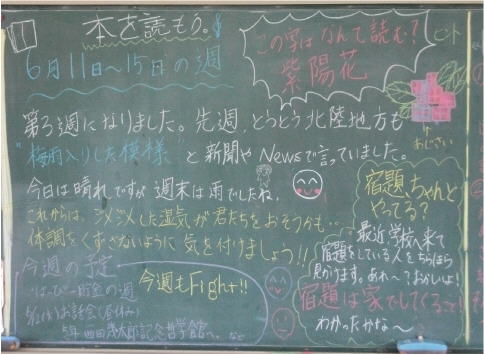 本を読もう。
6月11日～15日の週
この字はなんて読む？
ヒント
紫陽花
あじさい
第3週になりました。先週、とうとう北陸地方も
"梅雨入りした模様"と新聞やNewsで言っていました。
今日は晴れですが週末は雨でしたね。
これからは、ジメジメした湿気が君たちをおそうかも…
体調をくずさないように気を付けましょう!!
今週の予定
貯金の週
お話会(昼休み)
5年西田幾太郎記念哲学館へ。など
今週もFight!!
宿題、ちゃんと
やってる？
最近、学校へ来て
宿題をしている人をちらほら
見かけます。あれ～？おかしいよ！
宿題は家でしてくること！
わかったかな～